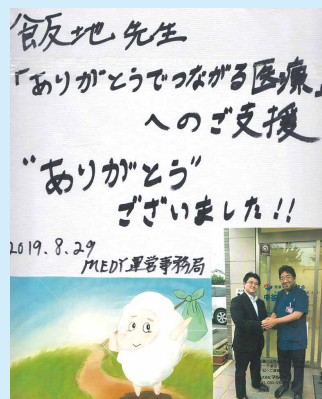 飯地先生
「ありがとうでつながる医療」
へのご支援
"ありがとう"
ございました!!
2019.8.29
MEDY運営事務局